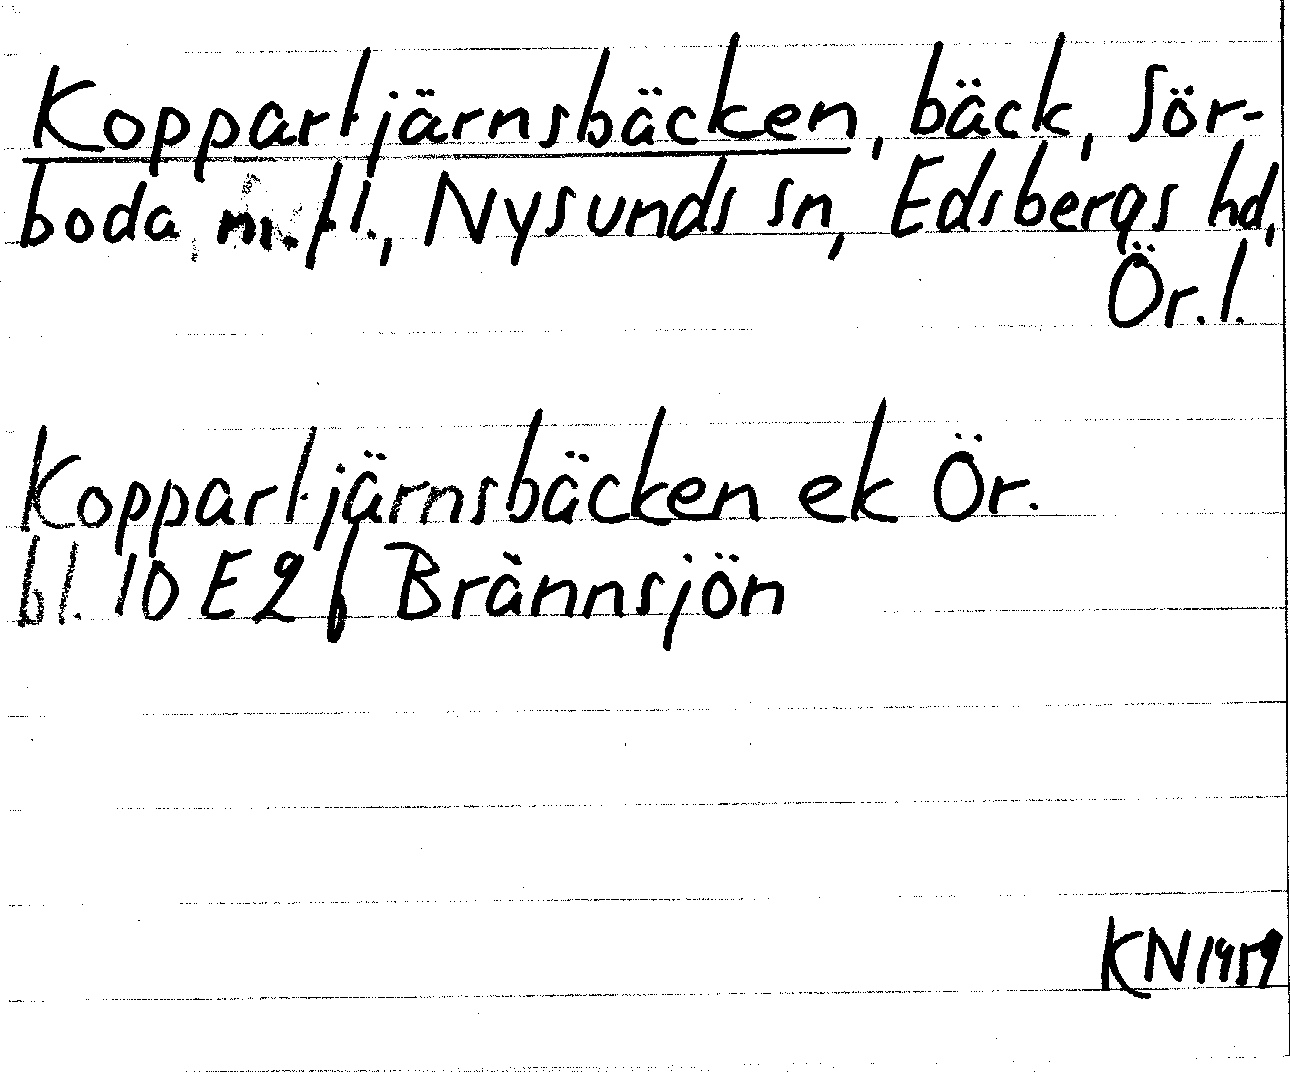 Koppartjärnsbäcken, bäck, Sör-
boda m.fl., Nysunds sn, Edsbergs hd,
Ör. l.
Koppartjärnsbäcken ek Ör.
bl. 10 E 2 f Brännsjön
KN 1959